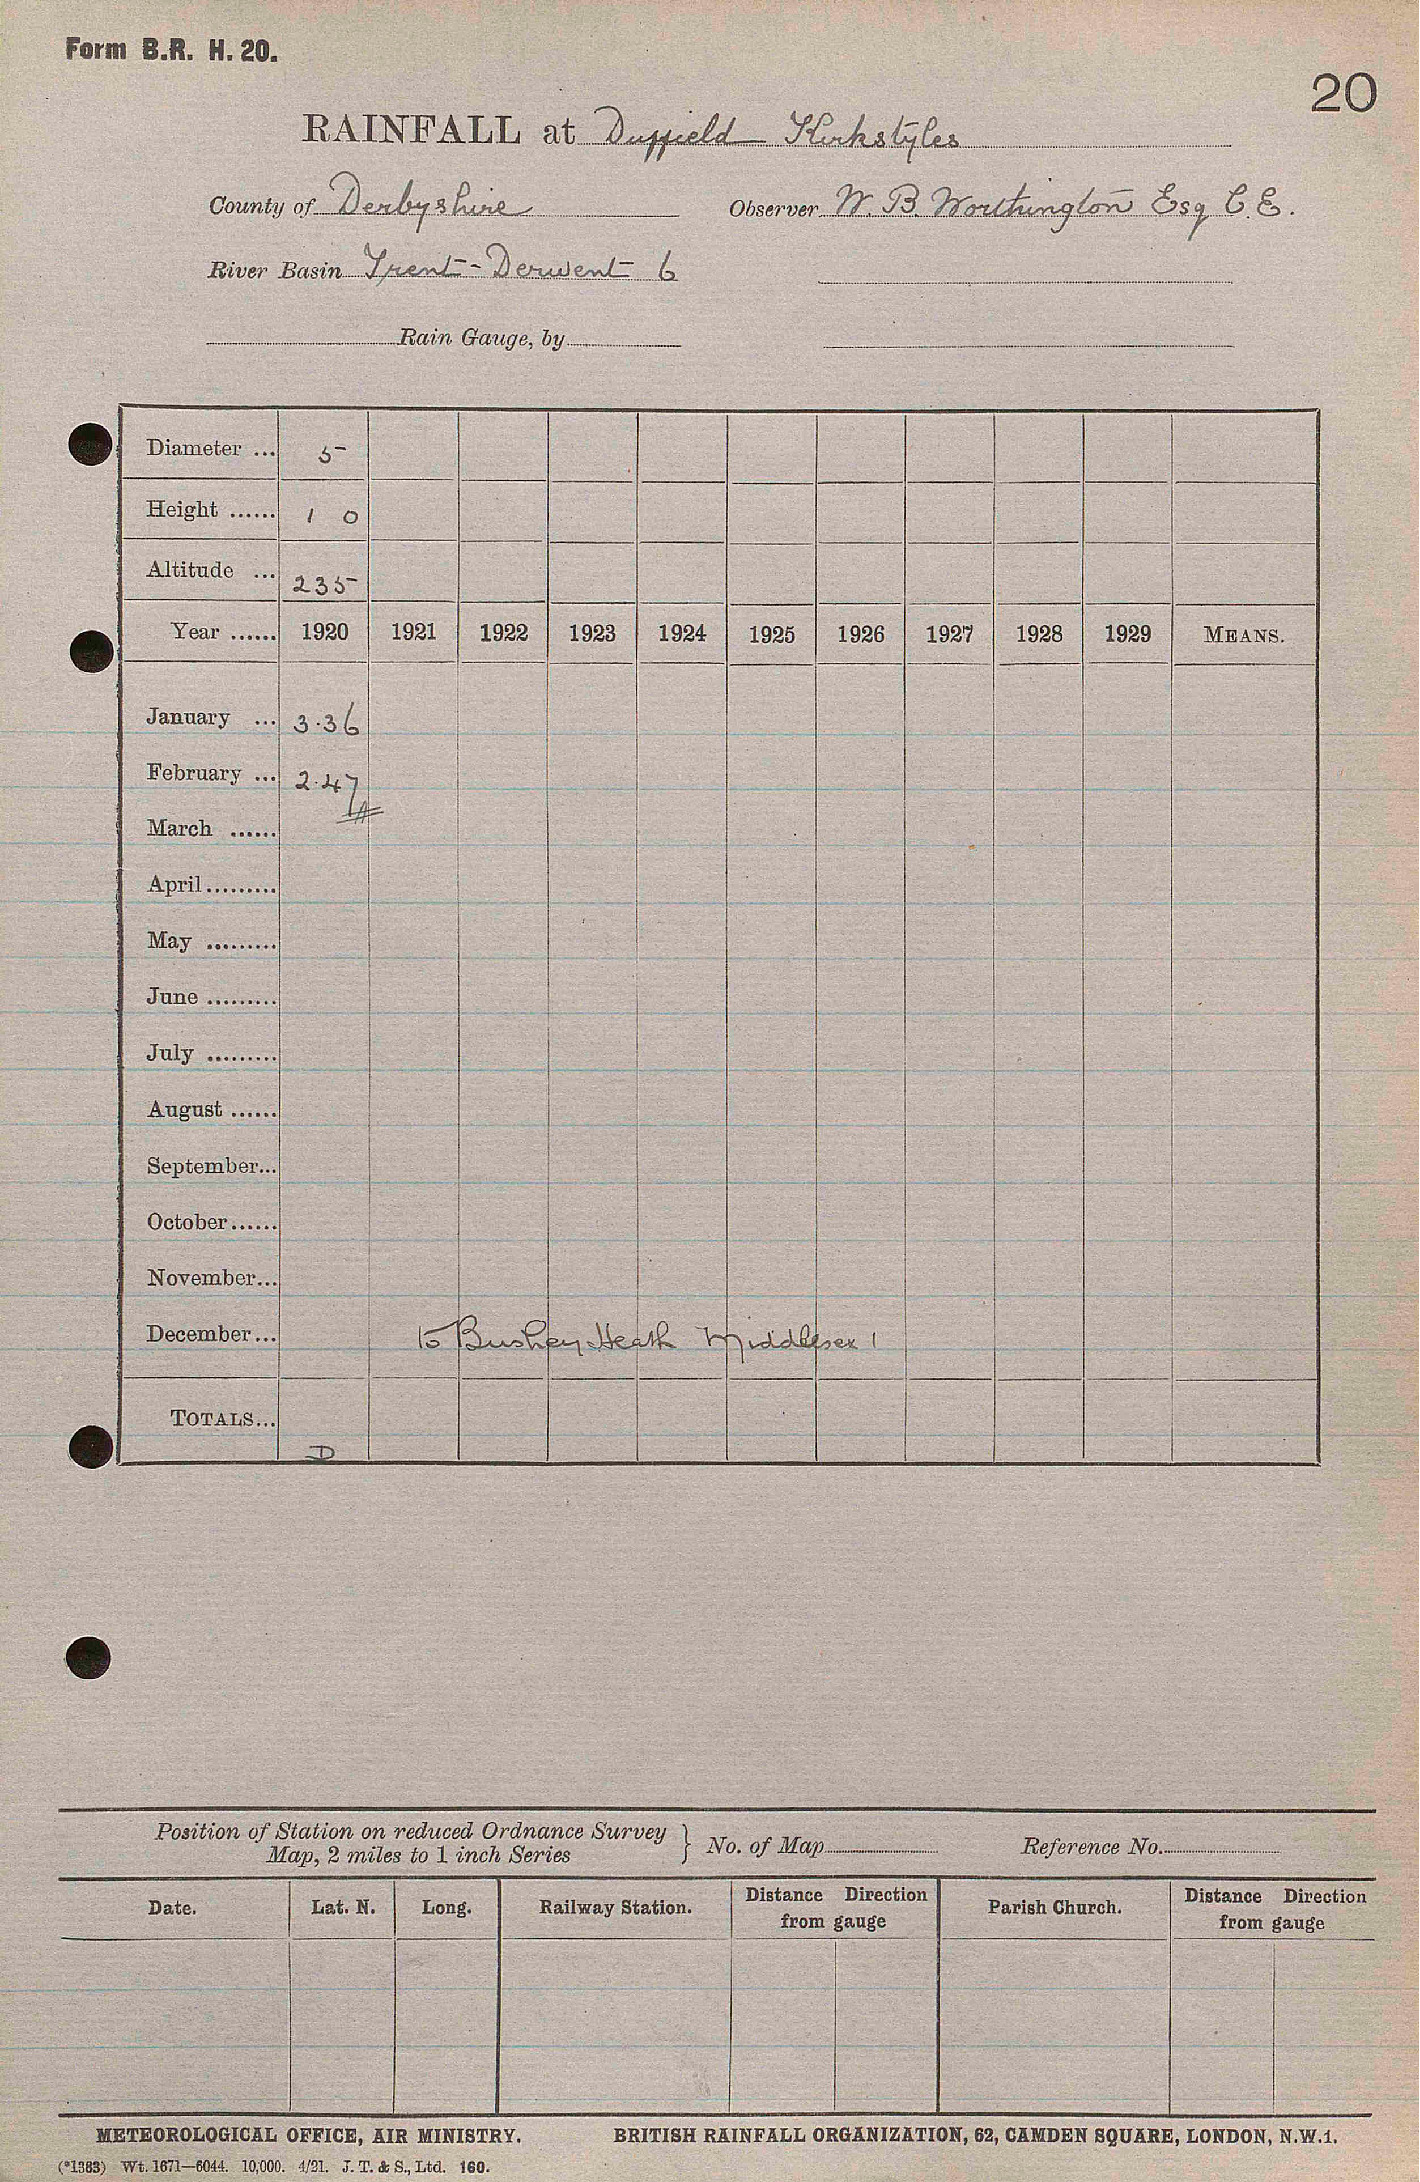 Form B.R. H. 20.
20
RAINFALL at Duffield Kirkstyles
County of Derbyshire Observer W. B. Worthington Esq C.E.
River Basin Trent-Derwent 6
Rain Gauge, by
Diameter ... 5
Height ...... 1 0
Altitude ... 235
Year ...... 1920 1921 1922 1923 1924 1925 1926 1927 1928 1929 MEANS.
January ... 3.36
February ... 2.47
March ......
April.........
May .........
June .........
July .........
August ......
September...
October......
November...
December... to Bushey Heath Middlesex 1
TOTALS...
D
Position of Station on reduced Ordnance Survey
Map, 2 miles to 1 inch Series } No. of Map Reference No.
Date. Lat. N. Long. Railway Station. Distance Direction from gauge Parish Church. Distance Direction from gauge
METEOROLOGICAL OFFICE, AIR MINISTRY. BRITISH RAINFALL ORGANIZATION, 62, CAMDEN SQUARE, LONDON, N.W.1.
(*1383) Wt. 1671—6044. 10,000. 4/21. J. T. & S., Ltd. 160.